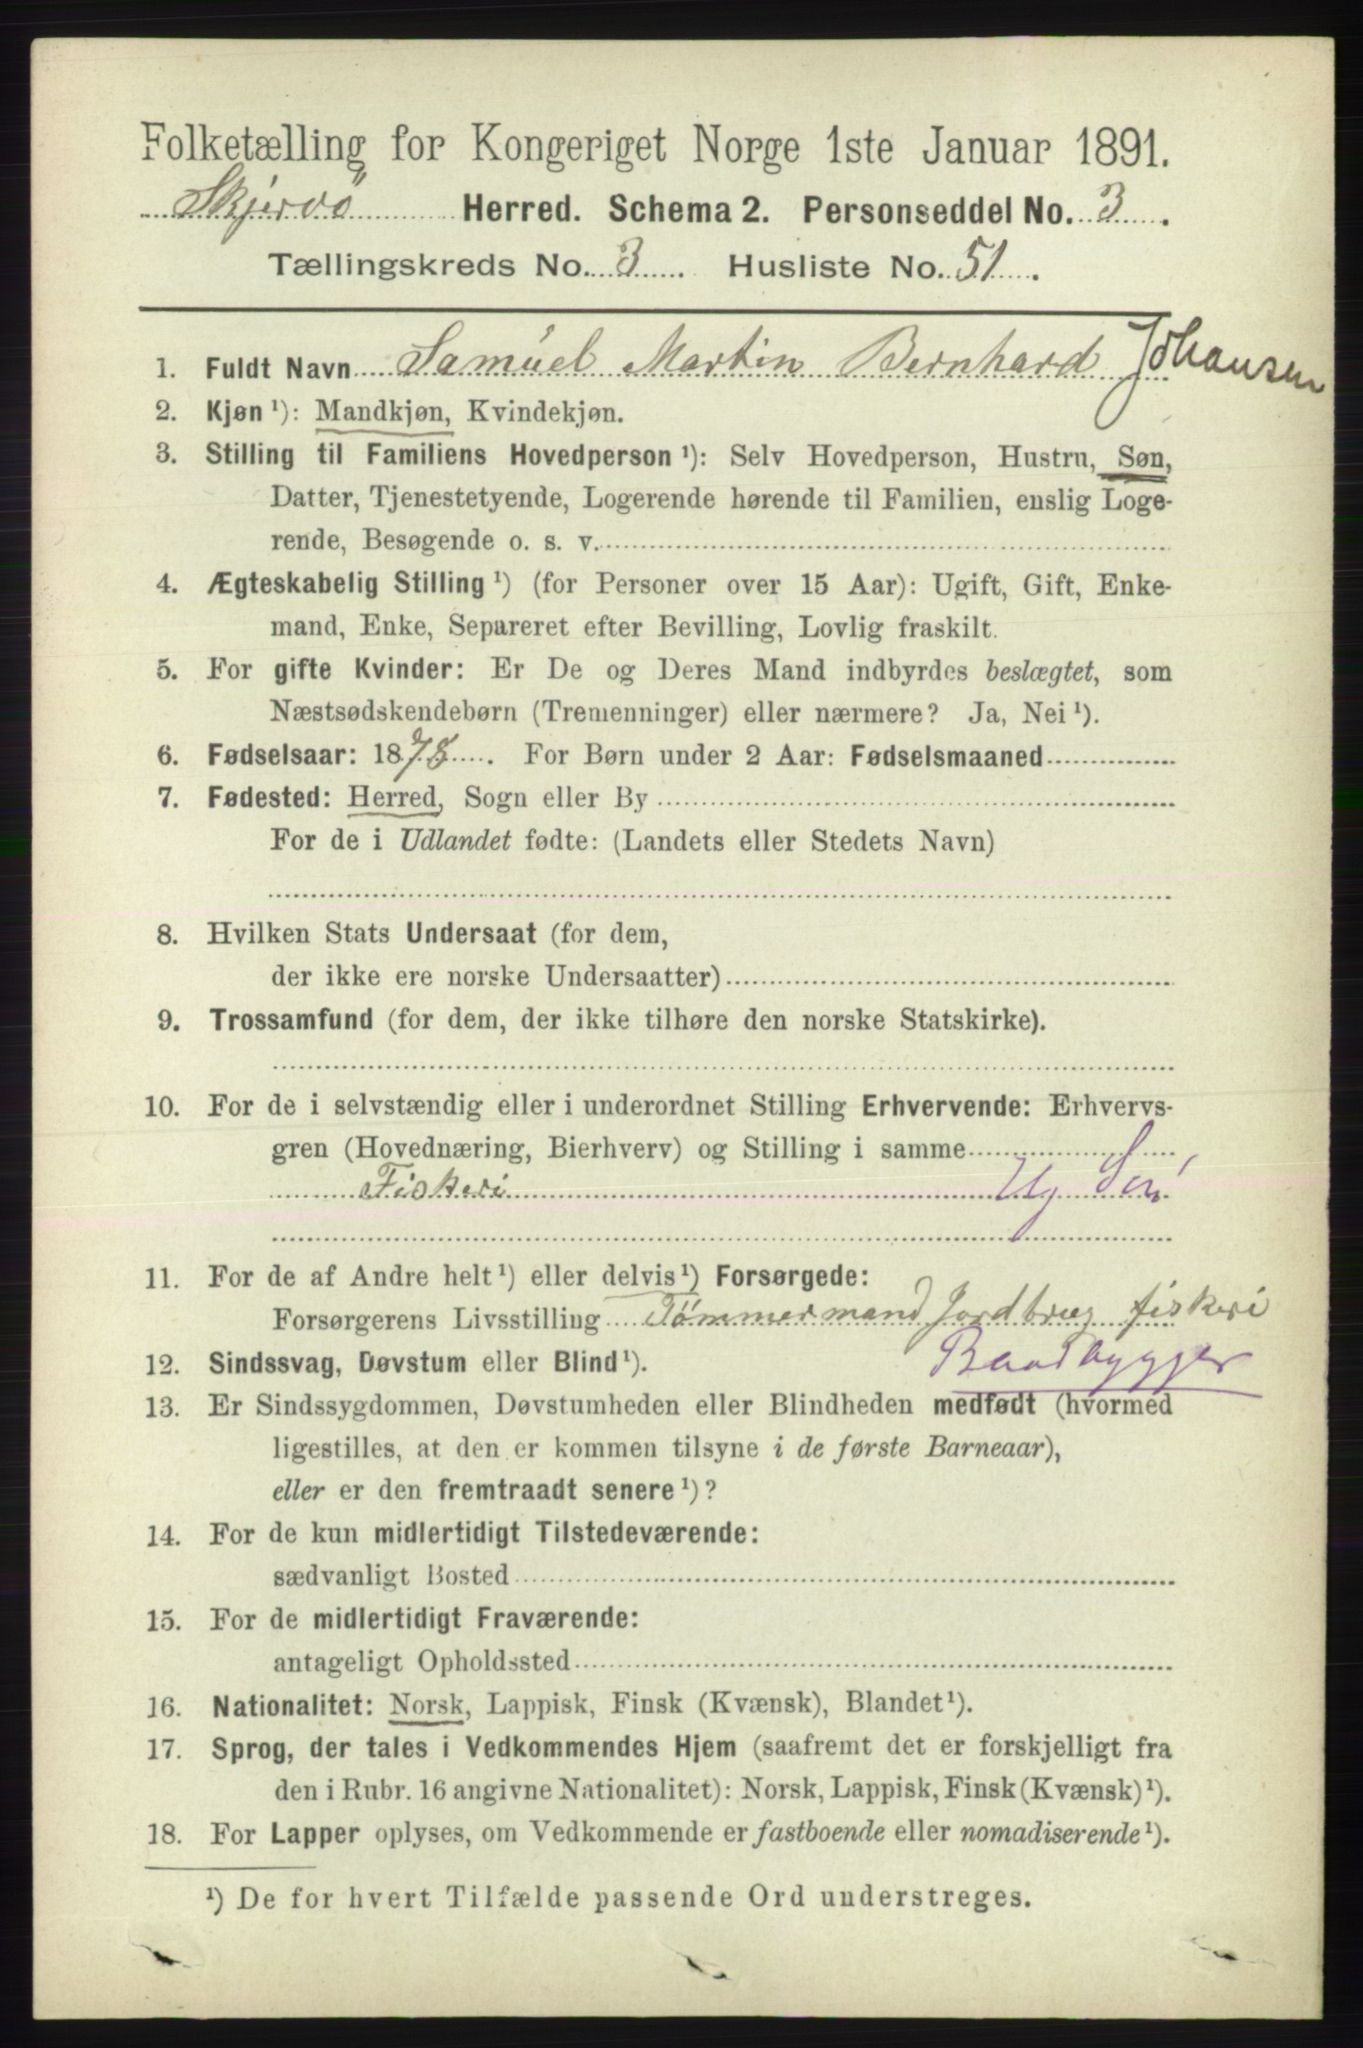 Folketælling for Kongeriget Norge 1ste Januar 1891.
Skjervö Herred. Schema 2. Personseddel No. 3.
Tællingskreds No. 3. Husliste No. 51.
1. Fuldt Navn Samuel Martin Bernhard Johansen
2. Kjøn ¹): Mandkjøn, Kvindekjøn.
3. Stilling til Familiens Hovedperson ¹): Selv Hovedperson, Hustru, Søn,
Datter, Tjenestetyende, Logerende hørende til Familien, enslig Loge-
rende, Besøgende o. s. v.
4. Ægteskabelig Stilling ¹) (for Personer over 15 Aar): Ugift, Gift, Enke-
mand, Enke, Separeret efter Bevilling, Lovlig fraskilt.
5. For gifte Kvinder: Er De og Deres Mand indbyrdes beslægtet, som
Næstsødskendebørn (Tremenninger) eller nærmere? Ja, Nei ¹).
6. Fødselsaar: 1878. For Børn under 2 Aar: Fødselsmaaned
7. Fødested: Herred, Sogn eller By
For de i Udlandet fødte: (Landets eller Stedets Navn)
8. Hvilken Stats Undersaat (for dem,
der ikke ere norske Undersaatter)
9. Trossamfund (for dem, der ikke tilhøre den norske Statskirke).
10. For de i selvstændig eller i underordnet Stilling Erhvervende: Erhvervs-
gren (Hovednæring, Bierhverv) og Stilling i samme
Fiskeri
11. For de af Andre helt ¹) eller delvis ¹) Forsørgede:
Forsørgerens Livsstilling Tømmermand Jordbrug fiskeri
Baadbygger
12. Sindssvag, Døvstum eller Blind ¹).
13. Er Sindssygdommen, Døvstumheden eller Blindheden medfødt (hvormed
ligestilles, at den er kommen tilsyne i de første Barneaar),
eller er den fremtraadt senere ¹)?
14. For de kun midlertidigt Tilstedeværende:
sædvanligt Bosted
15. For de midlertidigt Fraværende:
antageligt Opholdssted
16. Nationalitet: Norsk, Lappisk, Finsk (Kvænsk), Blandet ¹).
17. Sprog, der tales i Vedkommendes Hjem (saafremt det er forskjelligt fra
den i Rubr. 16 angivne Nationalitet): Norsk, Lappisk, Finsk (Kvænsk) ¹).
18. For Lapper oplyses, om Vedkommende er fastboende eller nomadiserende ¹).
¹) De for hvert Tilfælde passende Ord understreges.